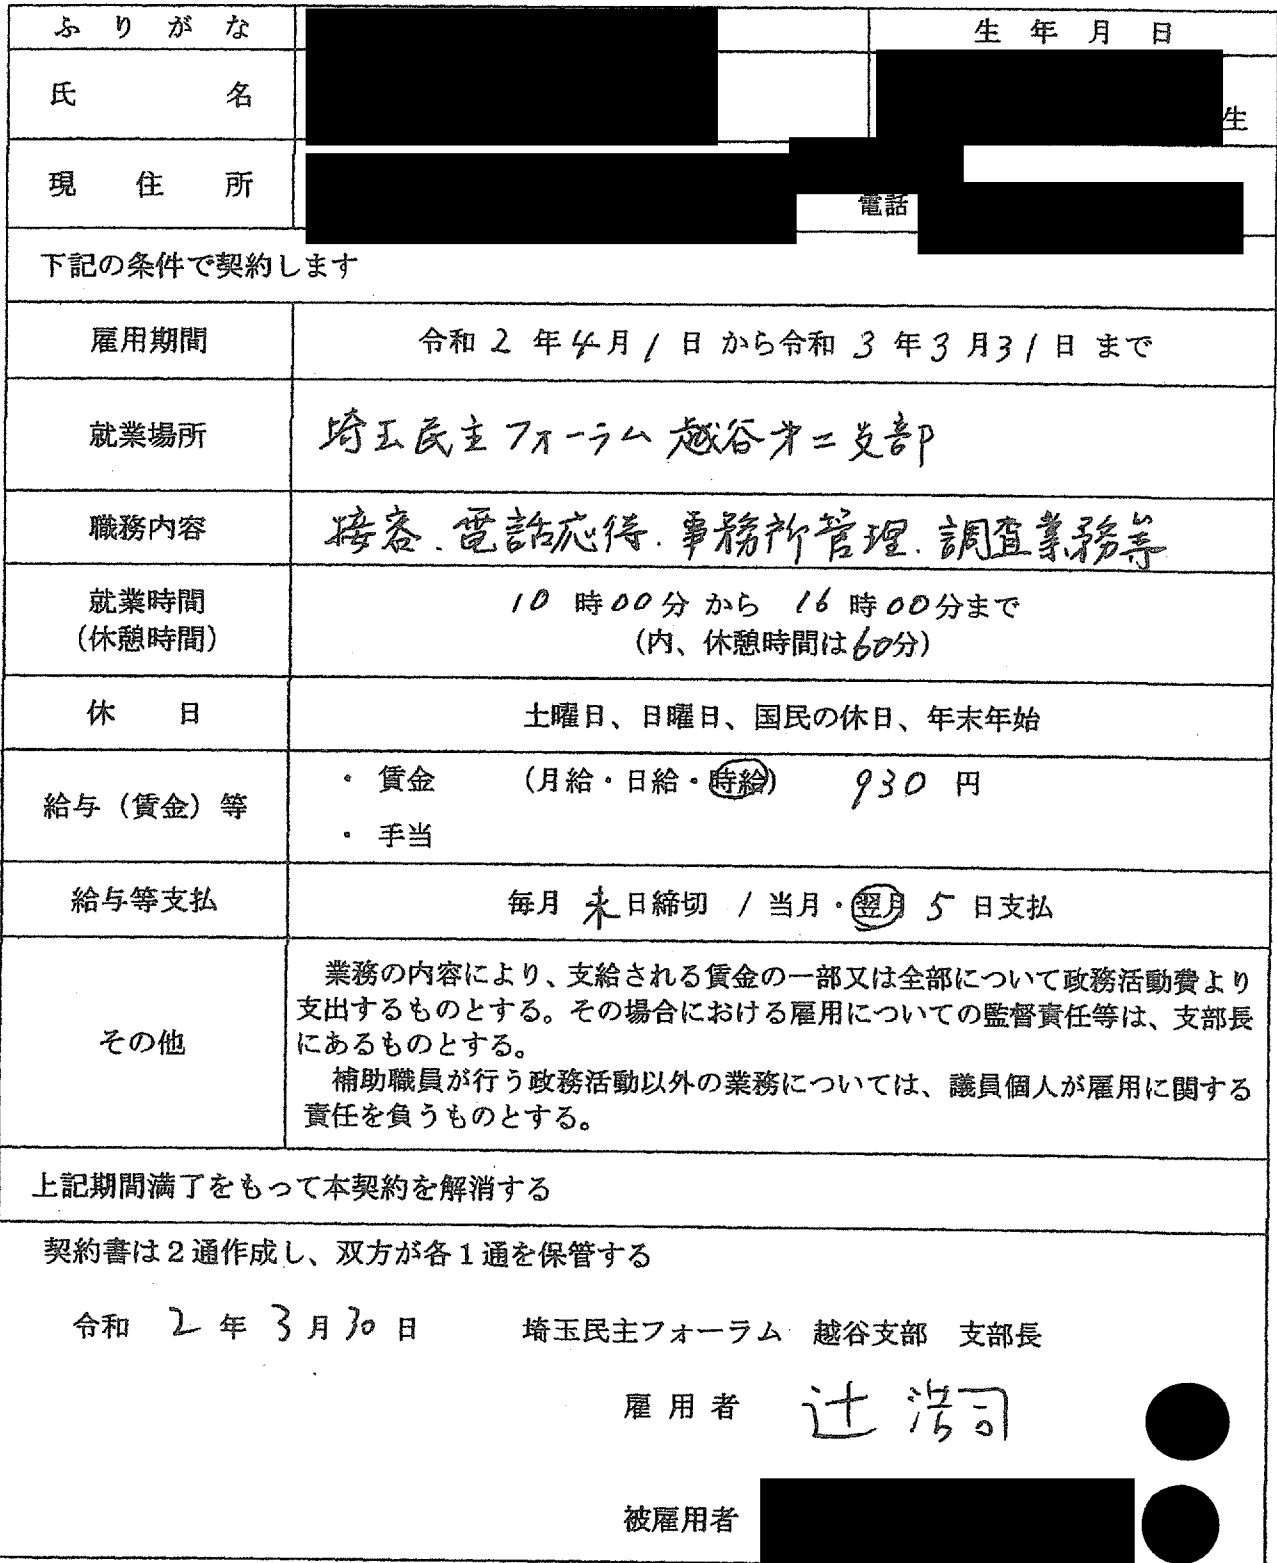 ふりがな
生年月日
氏名
生
現住所
電話
下記の条件で契約します
雇用期間
令和 2 年 4 月 1 日 から令和 3 年 3 月 31 日 まで
就業場所
埼玉民主フォーラム 越谷才二支部
職務内容
接客、電話応待、事務所管理、調査業務等
就業時間
(休憩時間)
10 時 00 分 から 16 時 00 分まで
(内、休憩時間は 60 分)
休日
土曜日、日曜日、国民の休日、年末年始
給与(賃金)等
・ 賃金 (月給・日給・時給) 930 円
・ 手当
給与等支払
毎月 末 日締切 / 当月・翌月 5 日支払
その他
業務の内容により、支給される賃金の一部又は全部について政務活動費より
支出するものとする。その場合における雇用についての監督責任等は、支部長
にあるものとする。
補助職員が行う政務活動以外の業務については、議員個人が雇用に関する
責任を負うものとする。
上記期間満了をもって本契約を解消する
契約書は2通作成し、双方が各1通を保管する
令和 2 年 3 月 30 日 埼玉民主フォーラム 越谷支部 支部長
雇用者 辻 浩司
被雇用者